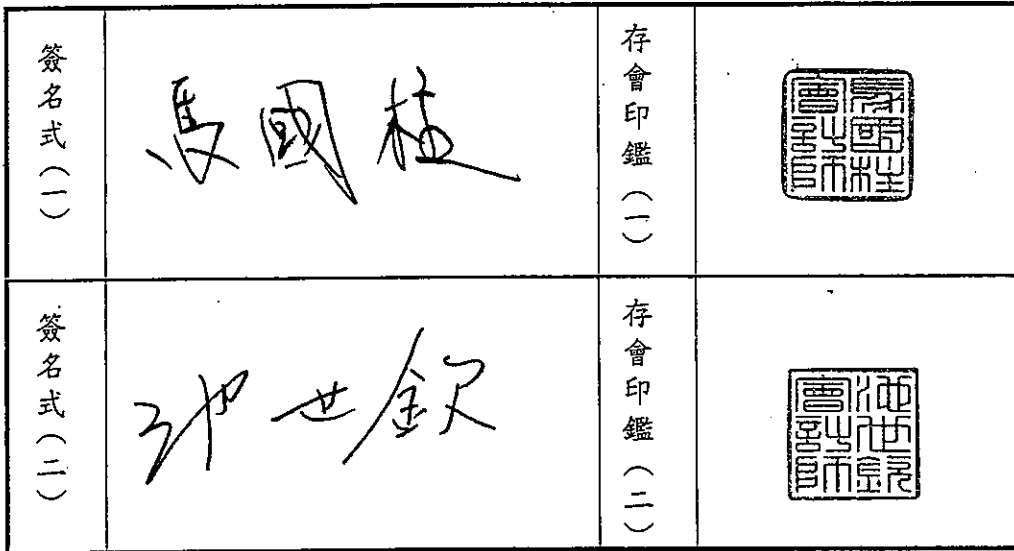 簽名式（一）
馬國柱
存會印鑑（一）
馬國柱
會計師
簽名式（二）
池世欽
存會印鑑（二）
池世欽
會計師